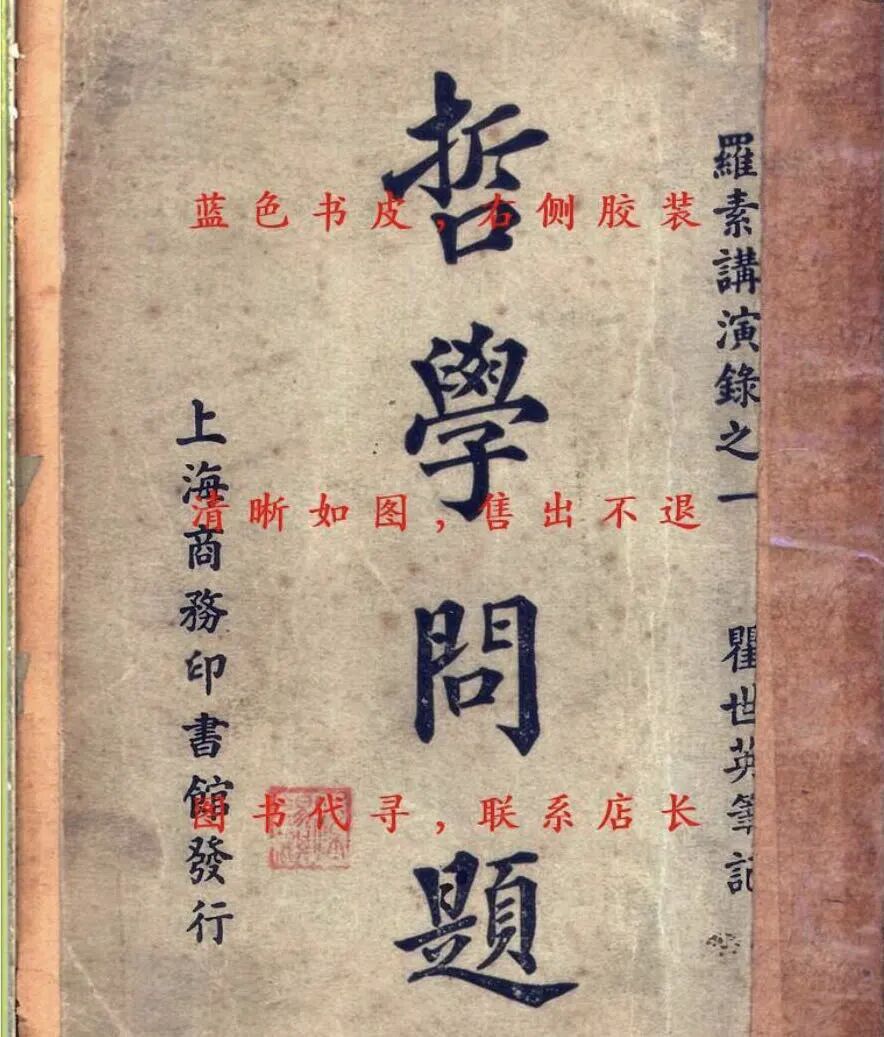 羅素講演錄之一
瞿世英筆記
哲學問題
上海商務印書館發行
蓝色书皮,右侧胶装
清晰如图,售出不退
图书代寻,联系店长